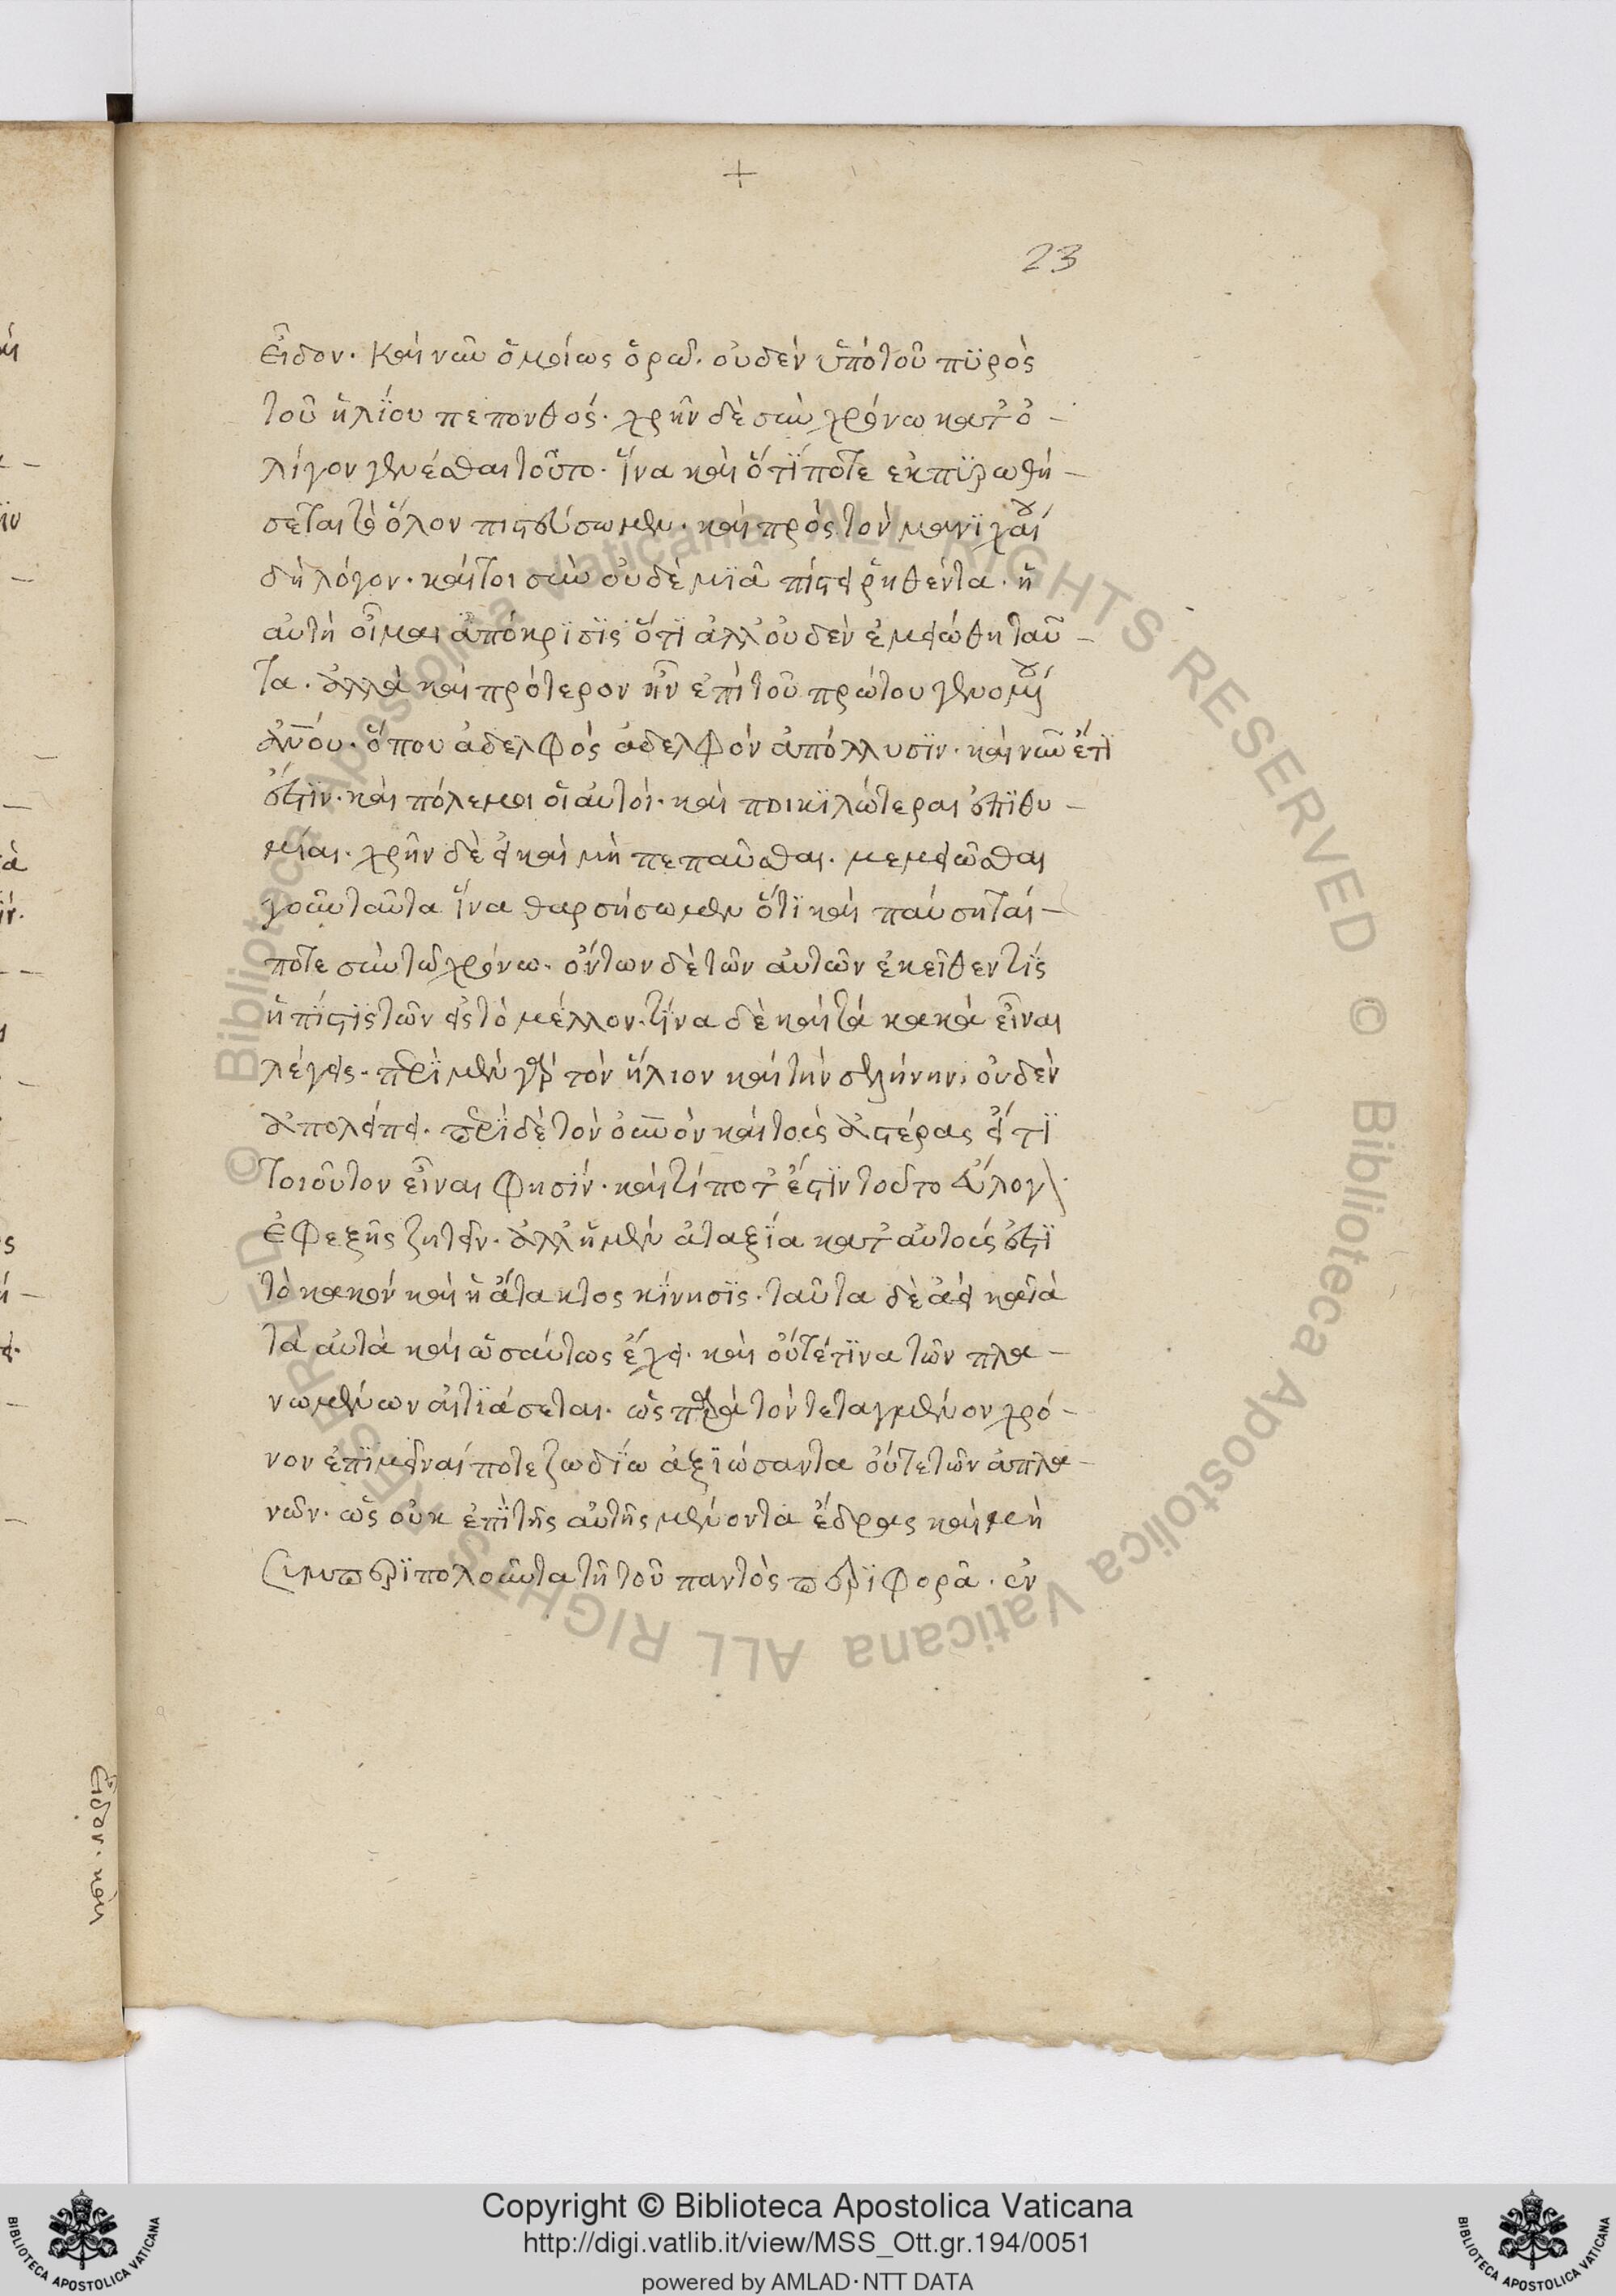 23
εἶδον· καὶ νῦν ὁμοίως ὁρῶ· οὐδὲν ὑπὸ τοῦ πϋρὸς
τοῦ ἡλίου πεπονθός· χρῆν δὲ σὺν χρόνω κατ' ὀ-
λίγον γενέσθαι τοῦτο· ἵνα καὶ ὅτί ποτε ἐκπϋρωθή-
σεται τὸ ὅλον πιστεύσωμεν· καὶ πρὸς τὸν μανιχαί
δὴ λόγον· καίτοι σὺν οὐδὲ μϊᾶ πίστει ῥηθέντα· ἡ
αὐτὴ οἶμαι ἀπόκρϊσϊς ὅτϊ ἀλλ' οὐδὲν ἐμειώθη ταῦ-
τα· ἀλλὰ καὶ πρότερον ἦν ἐπὶ τοῦ πρώτου γενομέ
ἀνου· ὅπου ἀδελφὸς ἀδελφὸν ἀπόλλυσϊν· καὶ νῦν ἔτϊ
ἐστϊν· καὶ πόλεμοι οἱ αὐτοί· καὶ ποικϊλώτεραι ἐπϊθυ-
μίαι· χρῆν δὲ εἰ καὶ μὴ πεπαῦσθαι· μεμειῶσθαι
γοῦν ταῦτα ἵνα θαρσήσωμεν ὅτϊ καὶ παύσηταί-
ποτε σὺν τῶ χρόνω· ὄντων δὲ τῶν αὐτῶν ἐκεῖθεν τίς
ἡ πίστϊς τῶν εἰς τὸ μέλλον· τίνα δὲ καὶ τὰ κακὰ εἶναι
λέγεις· περὶ μὲν γὰρ τὸν ἥλιον καὶ τὴν σελήνην, οὐδὲν
ἀπολείπει· περὶ δὲ τὸν οὐνὸν καὶ τοὺς ἀστέρας εἴ τϊ
τοιοῦτον εἶναι φησίν· καὶ τί ποτ' ἐστϊν τοῦτο εὔλογ
ἐφεξῆς ζητεῖν· ἀλλ' ἡ μὲν ἀταξία κατ' αὐτούς ἐστϊ
τὸ κακόν καὶ ἡ ἄτακτος κίνησϊς· ταῦτα δὲ ἀεὶ κατὰ
τὰ αὐτὰ καὶ ὡσαύτως ἔχει· καὶ οὔτέ τϊνα τῶν πλα-
νωμένων αἰτϊάσεται· ὡς παρὰ τὸν τεταγμένον χρό-
νον ἐπϊμεῖναί ποτε ζωδίω ἀξϊώσαντα οὔτε τῶν ἀπλα-
νῶν· ὡς οὐκ ἐπὶ τῆς αὐτῆς μένοντα ἕδρας καὶ μὴ
συμπερϊπολοῦντα τῆ τοῦ παντὸς περϊφορᾶ· ἐν
εἶδον· καὶ
Copyright © Biblioteca Apostolica Vaticana
http://digi.vatlib.it/view/MSS_Ott.gr.194/0051
powered by AMLAD·NTT DATA
BIBLIOTECA APOSTOLICA VATICANA
BIBLIOTECA APOSTOLICA VATICANA
© Biblioteca Apostolica Vaticana ALL RIGHTS RESERVED © Biblioteca Apostolica Vaticana ALL RIGHTS RESERVED